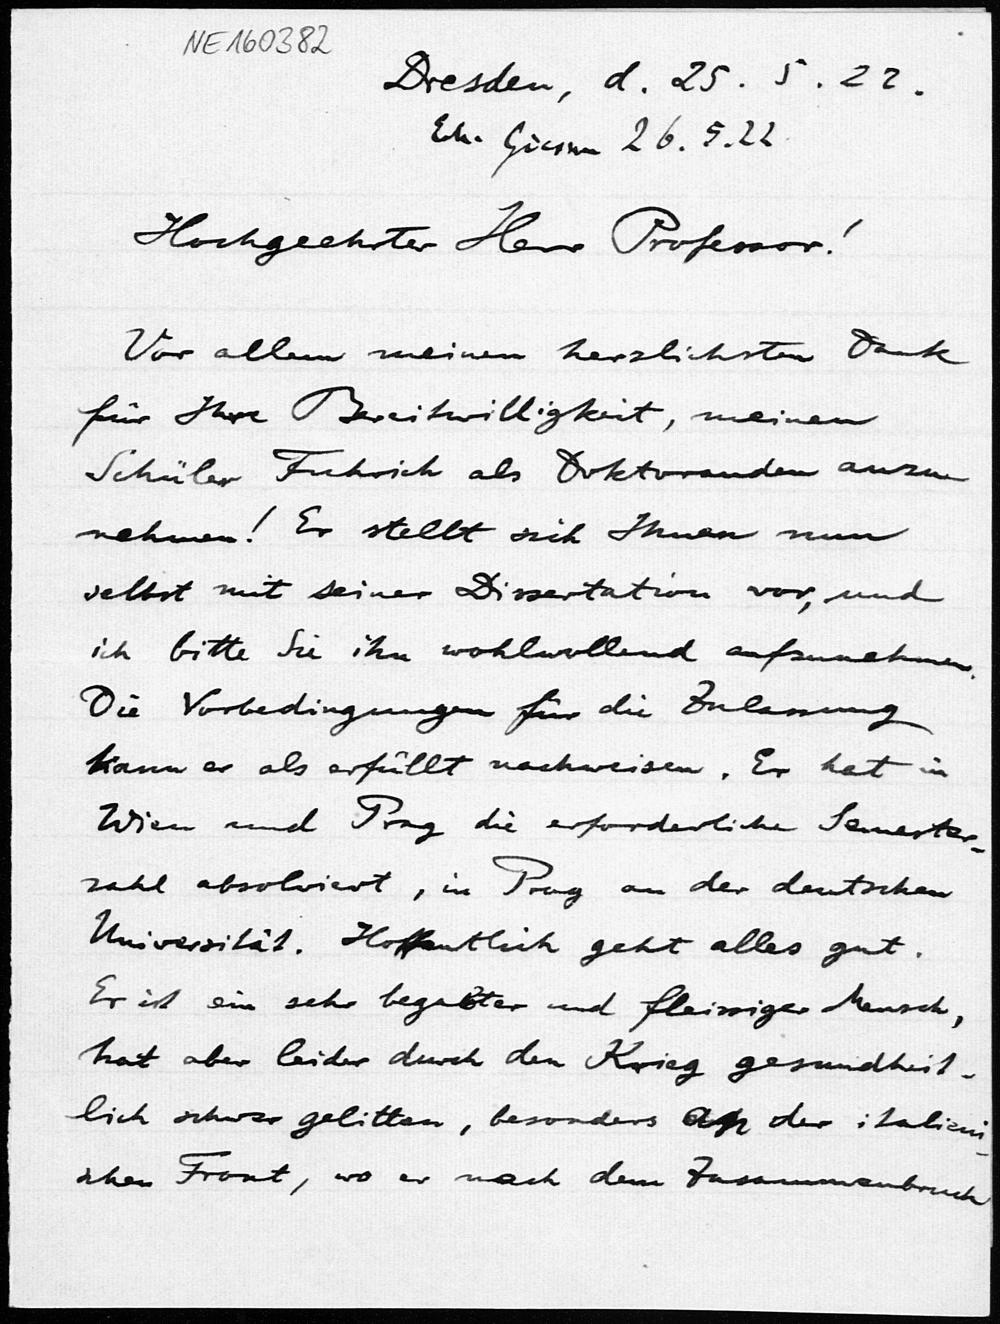 NE160382
Dresden, d. 25. 5. 22.
26. 5. 22
Hochgeehrter Herr Professor!
Vor allem meinen herzlichsten Dank
für Ihre Bereitwilligkeit, meinen
Schüler Fuhrich als Doktoranden anzu
nehmen! Er stellt sich Ihnen nun
selbst mit seiner Dissertation vor, und
ich bitte Sie ihn wohlwollend aufzunehmen.
Die Vorbedingungen für die Zulassung
kann er als erfüllt nachweisen. Er hat in
Wien und Prag die erforderliche Semester-
zahl absolviert, in Prag an der deutschen
Universität. Hoffentlich geht alles gut.
Er ist ein sehr begabter und fleissiger Mensch,
hat aber leider durch den Krieg gesundheit-
lich schwer gelitten, besonders an der italieni-
schen Front, wo er nach dem Zusammenbruch